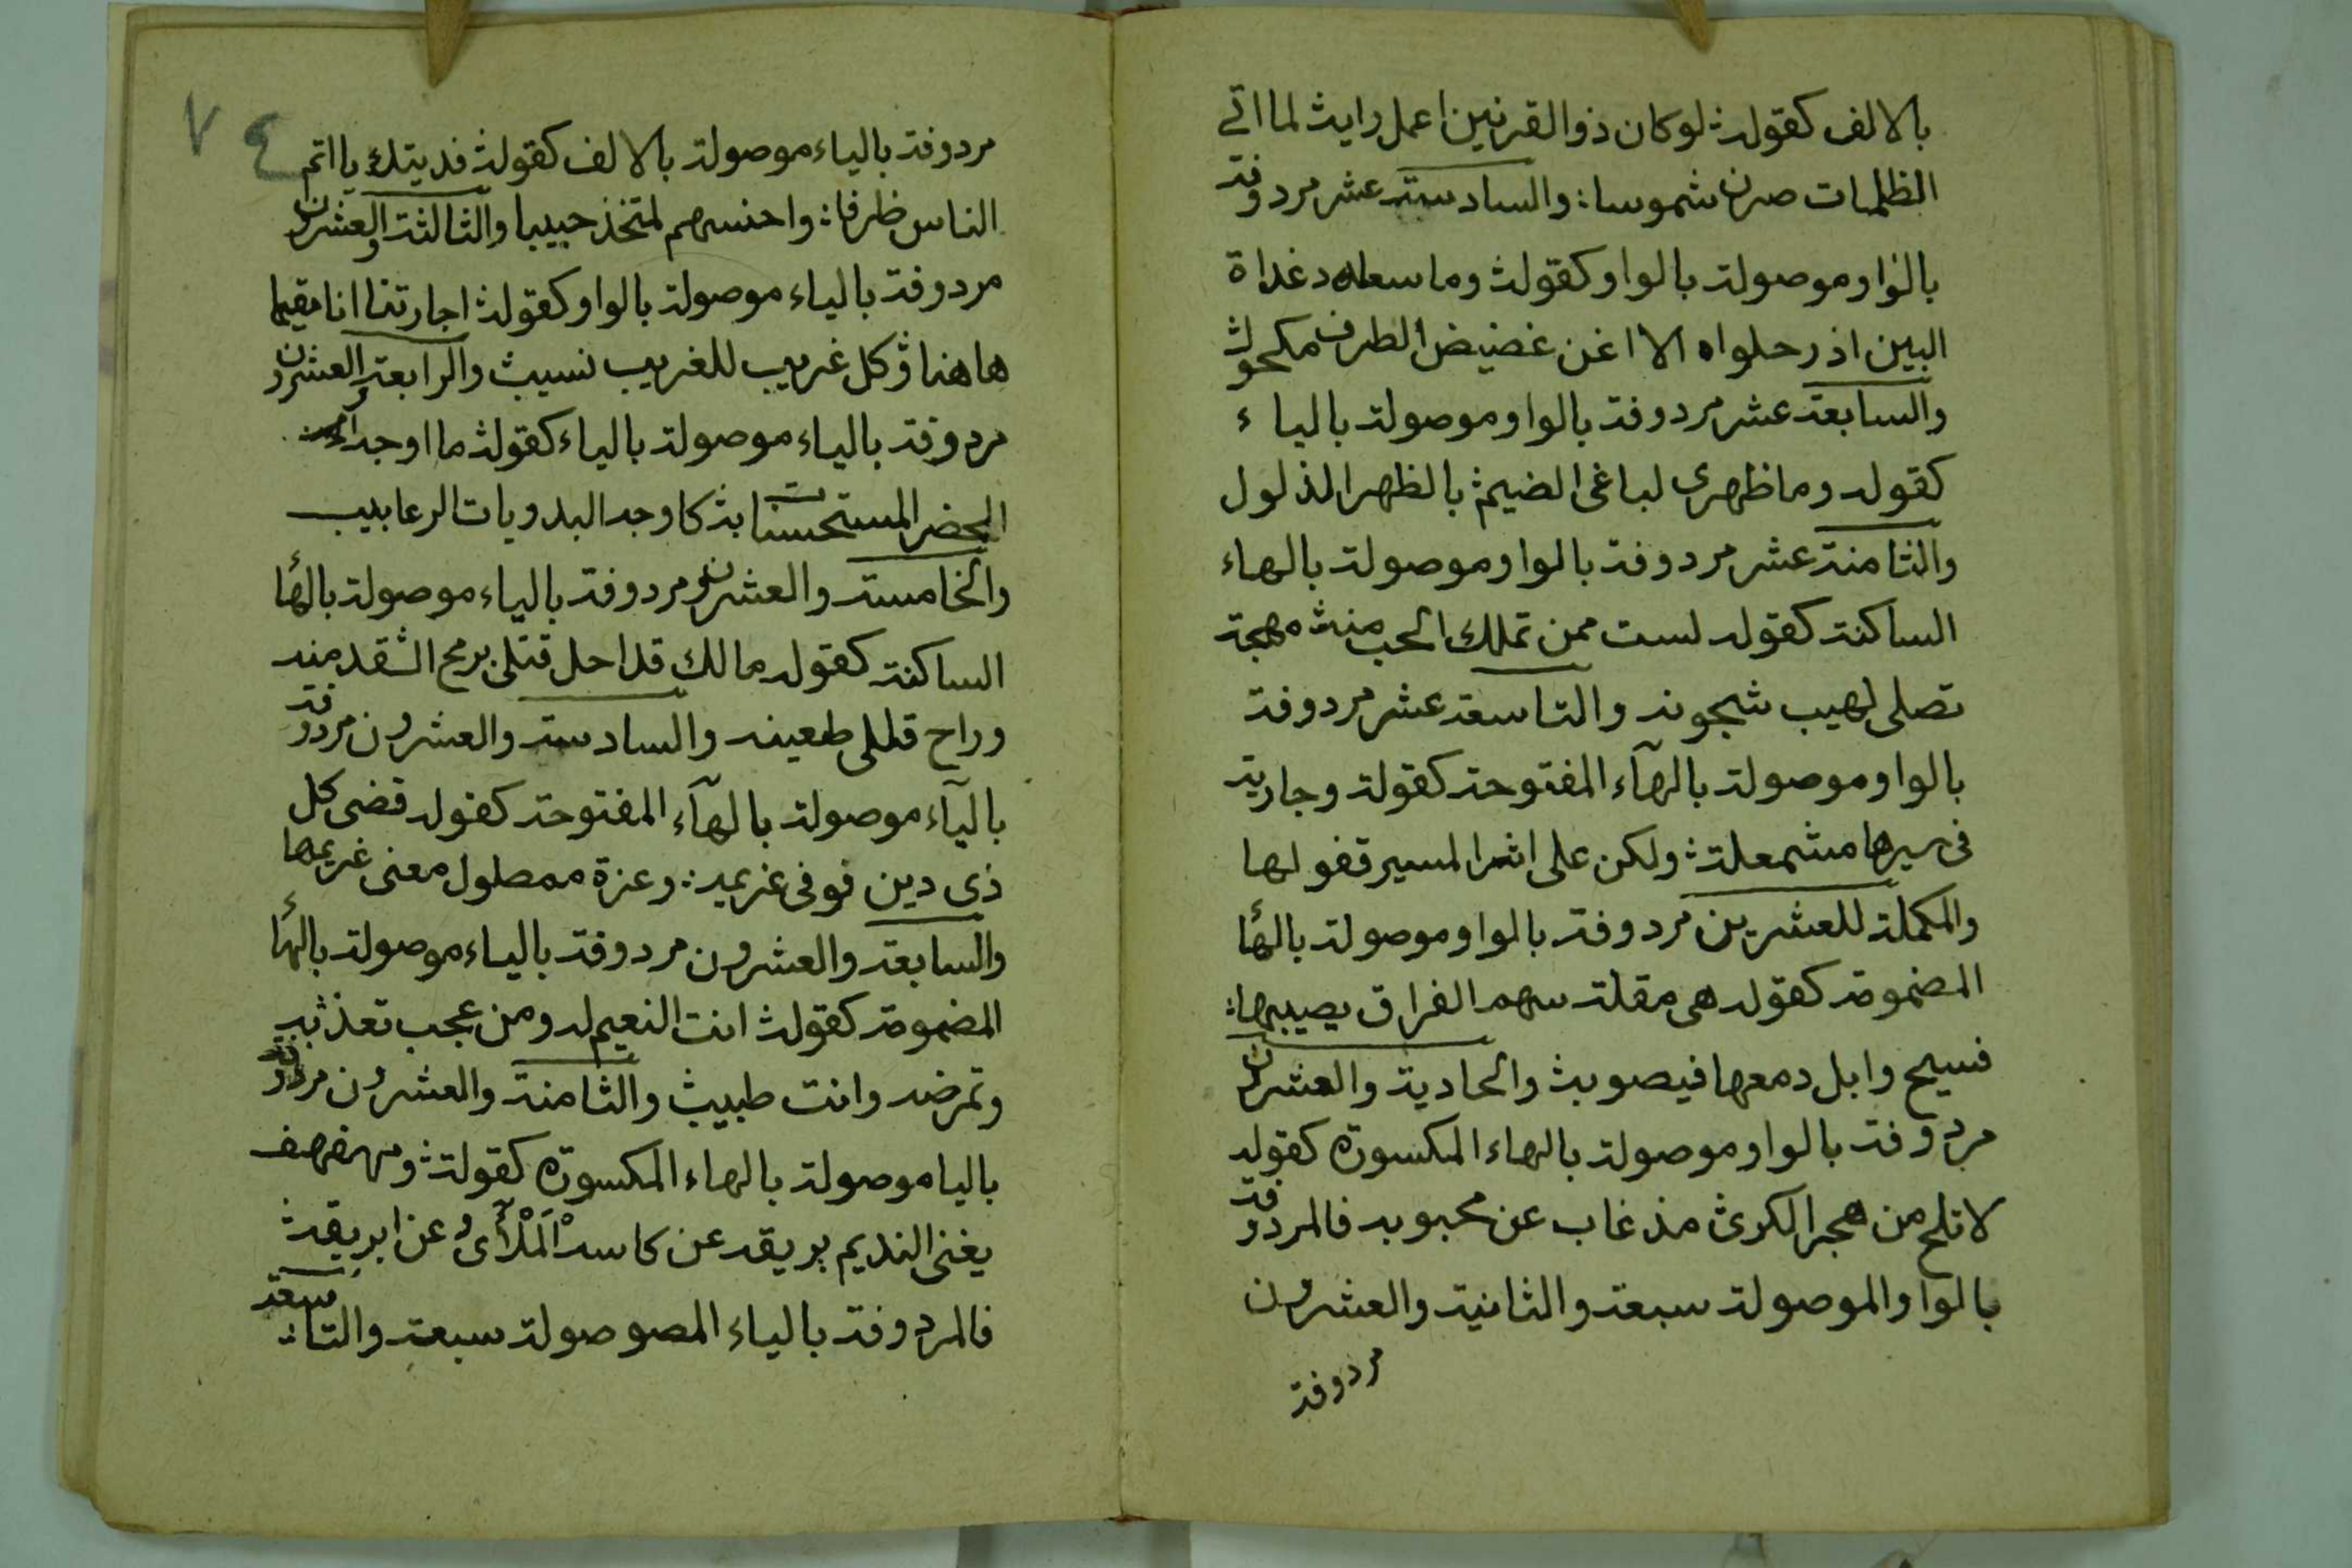 بالالف كقوله لو كان ذو القرنين اعمل رايه لما اتى
الظلمات صرن شموسا والسادسة عشر مردوفة
بالواو موصولة بالواو كقوله وما سعاد غداة
البين اذ رحلوا الا اغن غضيض الطرف مكحول
والسابعة عشر مردوفة بالواو موصولة بالياء
كقوله وما ظهرى لباغى الضيم بالظهر الذلول
والثامنة عشر مردوفة بالواو موصولة بالهاء
الساكنة كقوله لست ممن تملك الحب منه مهجة
تصلى لهيب شجونه والتاسعة عشر مردوفة
بالواو موصولة بالهآء المفتوحة كقوله وجارية
فى سيرها مشمعلة ولكن على اثر المسير قفولها
والمكملة للعشرين مردوفة بالواو موصولة بالهاء
المضمومة كقوله هى مقلة سهم الفراق يصيبها
فسيح وابل دمعها فيصوبه والحادية والعشرون
مردوفة بالواو موصولة بالهاء المكسورة كقوله
لا تلح من هجر الكرى مذ غاب عن محبوبه فالمردوفة
بالواو الموصولة سبعة والثانية والعشرون
مردوفة
٧٤
مردوفة بالياء موصولة بالالف كقوله فديتك يا اتم
الناس ظرفا واحسنهم لمتخذ حبيبا والثالثة والعشرون
مردوفة بالياء موصولة بالواو كقوله اجارتنا انا مقيما
هاهنا وكل غريب للغريب نسيب والرابعة والعشرون
مردوفة بالياء موصولة بالياء كقوله ما اوجه
الحضر المستحسنات به كاوجه البدويات الرعابيب
والخامسة والعشرون مردوفة بالياء موصولة بالهاء
الساكنة كقوله مالك قد احل قتلى برمح القد منه
وراح قللى طعينه والسادسة والعشرون مردوفة
باليآء موصولة بالهآء المفتوحة كقوله قضى كل
ذى دين فوفى غريمه وعزة ممطول معنى غريمها
والسابعة والعشرون مردوفة بالياء موصولة بالهاء
المضمومة كقوله انت النعيم له ومن عجب تعذبه
وتمرضه وانت طبيبه والثامنة والعشرون مردوفة
باليا موصولة بالهاء المكسورة كقوله ومهفهف
يغنى النديم بريقه عن كاسه الْمَلْآى وعن ابريقه
فالمردوفة بالياء الموصولة سبعة والتاسعة